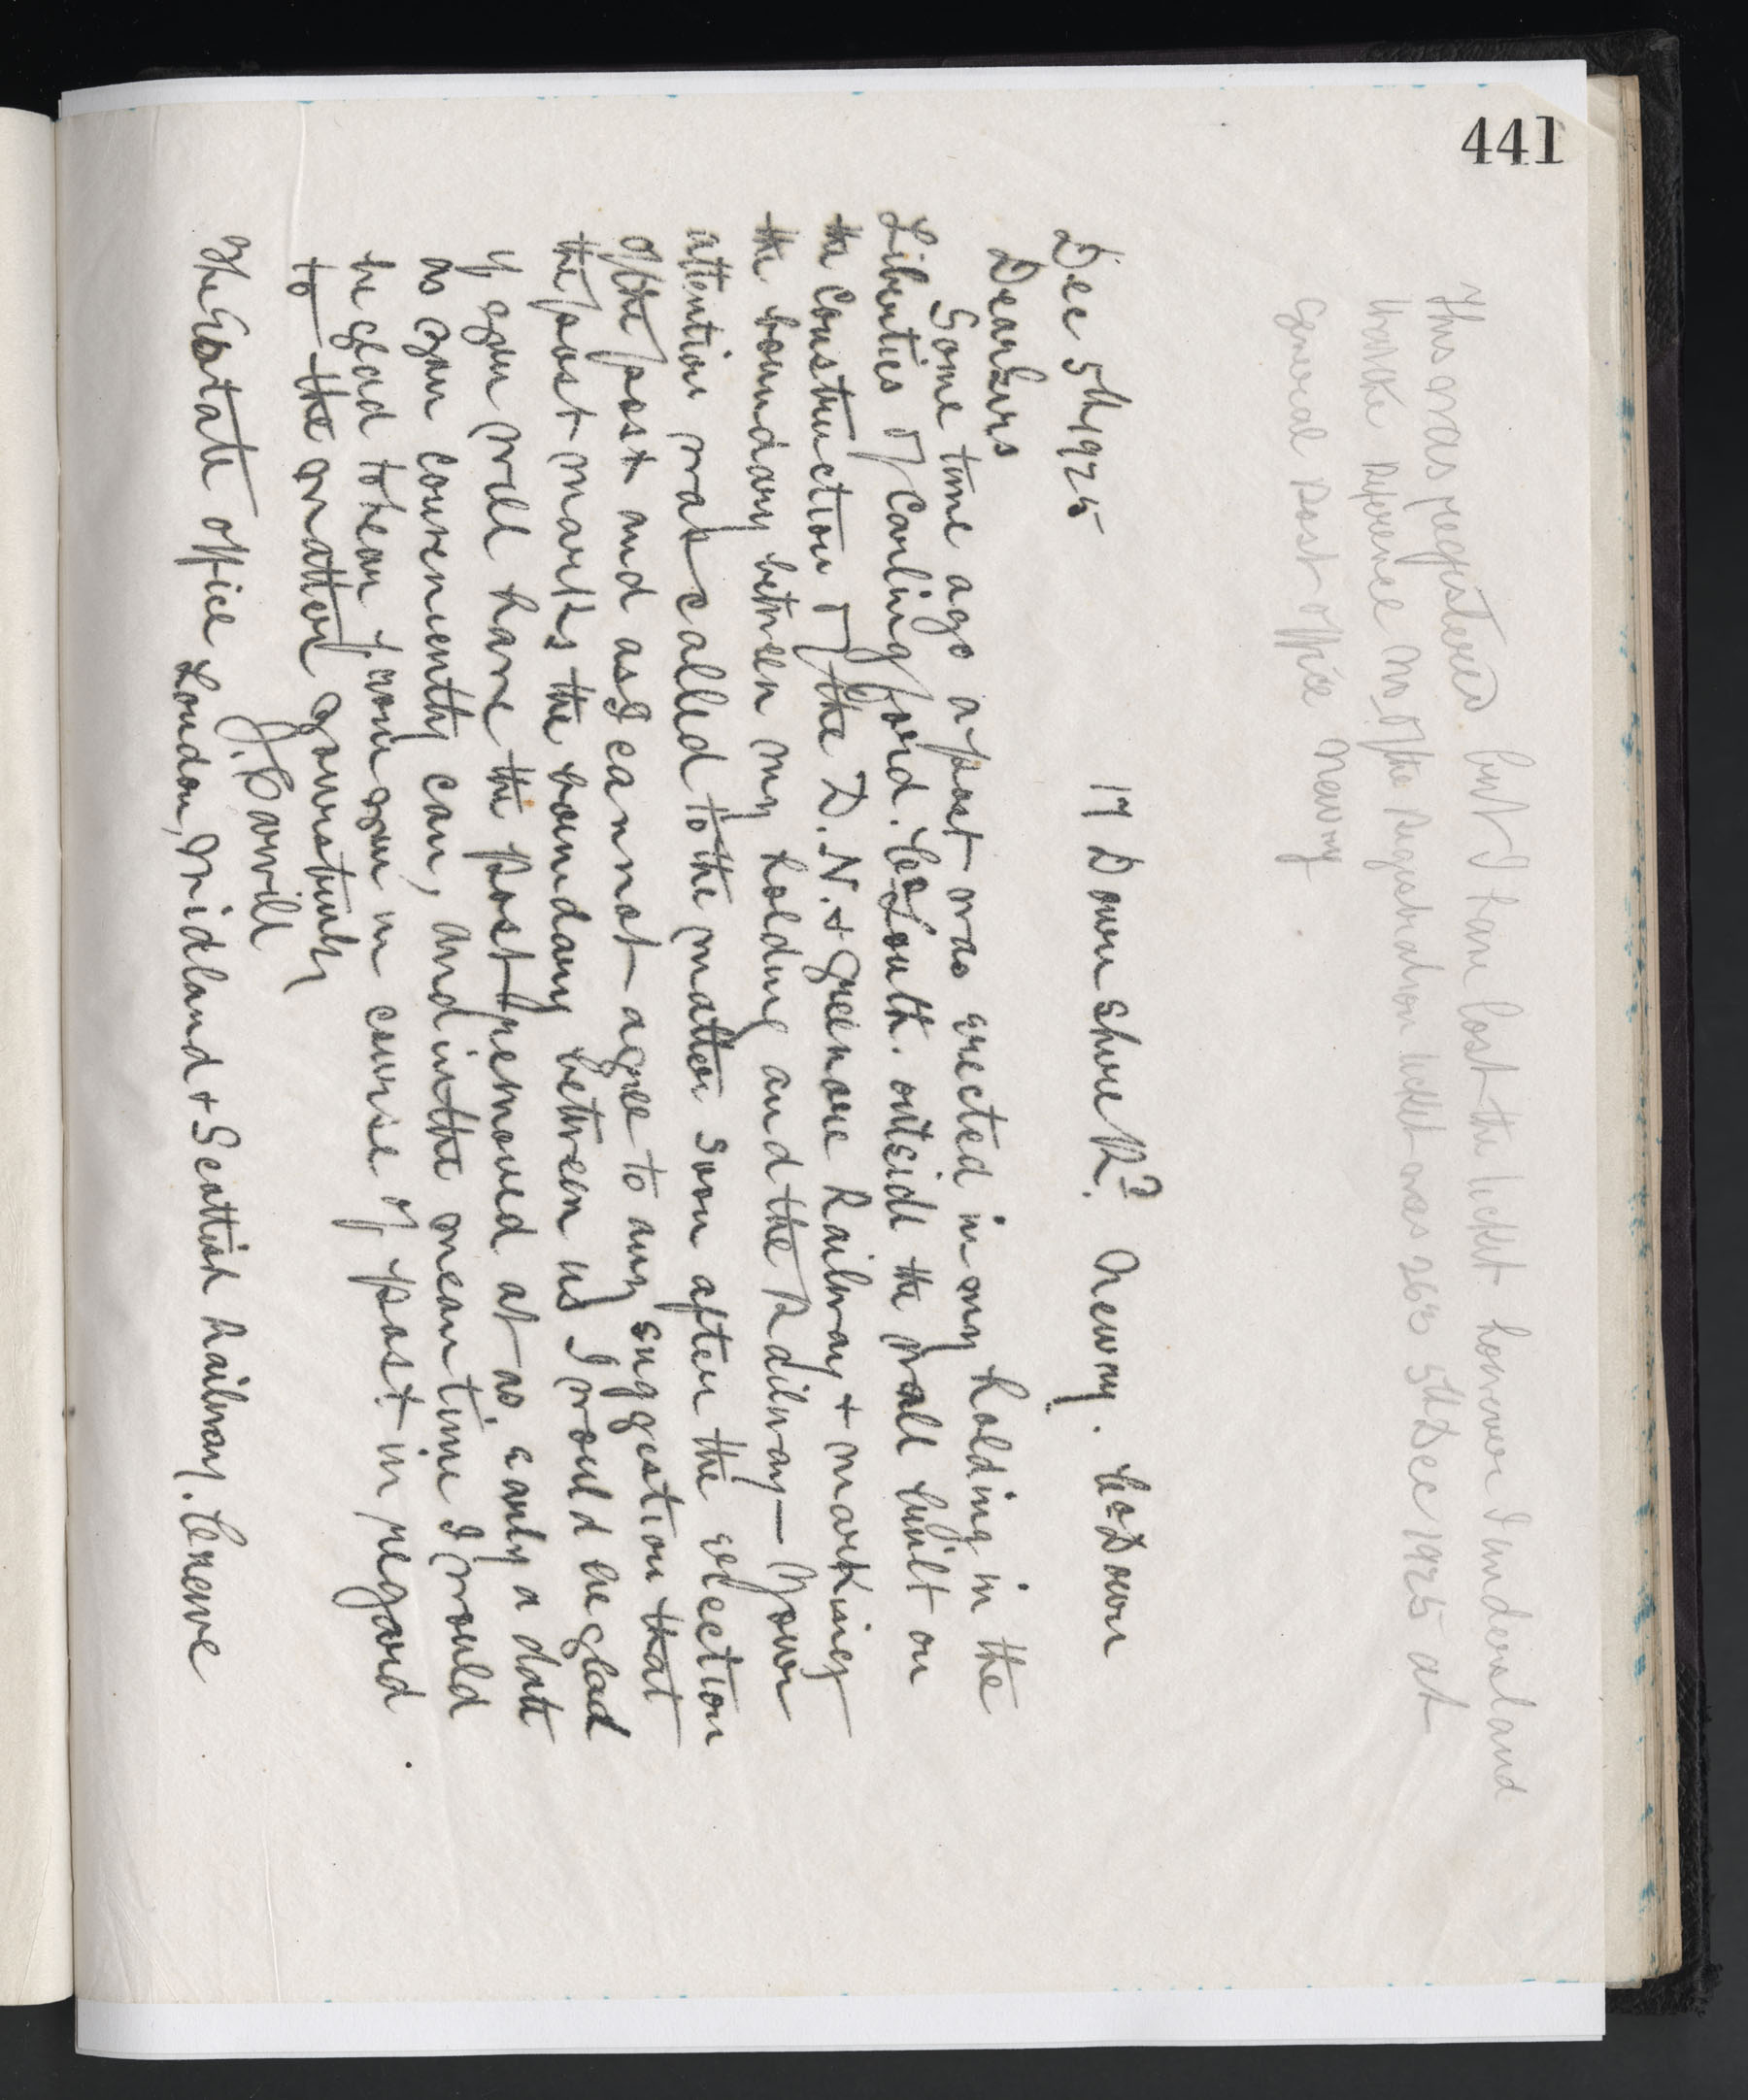 441
This was registered but I have lost the ticket. however I understand
that the reference no. of the Registration ticket was 263 5th Dec 1925 at
General Post Office Newry
17 Downshire Rd. Newry. Co Down
Dec 5th 1925
Dear Sirs
Some time ago a post was erected in my holding in the
Liberties of Carlingford. Co Louth. outside the wall built on
the construction of the D. N. & Greenore Railway & marking
the boundary between my holding and the Railway — Your
attention was called to the matter soon after the erection
of the post and as I cannot agree to any suggestion that
the post marks the boundary between us I would be glad
if you will have the post removed at as early a date
as you conveniently can, and in the meantime I would
be glad to hear from you in course of post in regard
to the matter yours truly
J. Carvill
The Estate Office London, Midland & Scottish Railway. Crewe